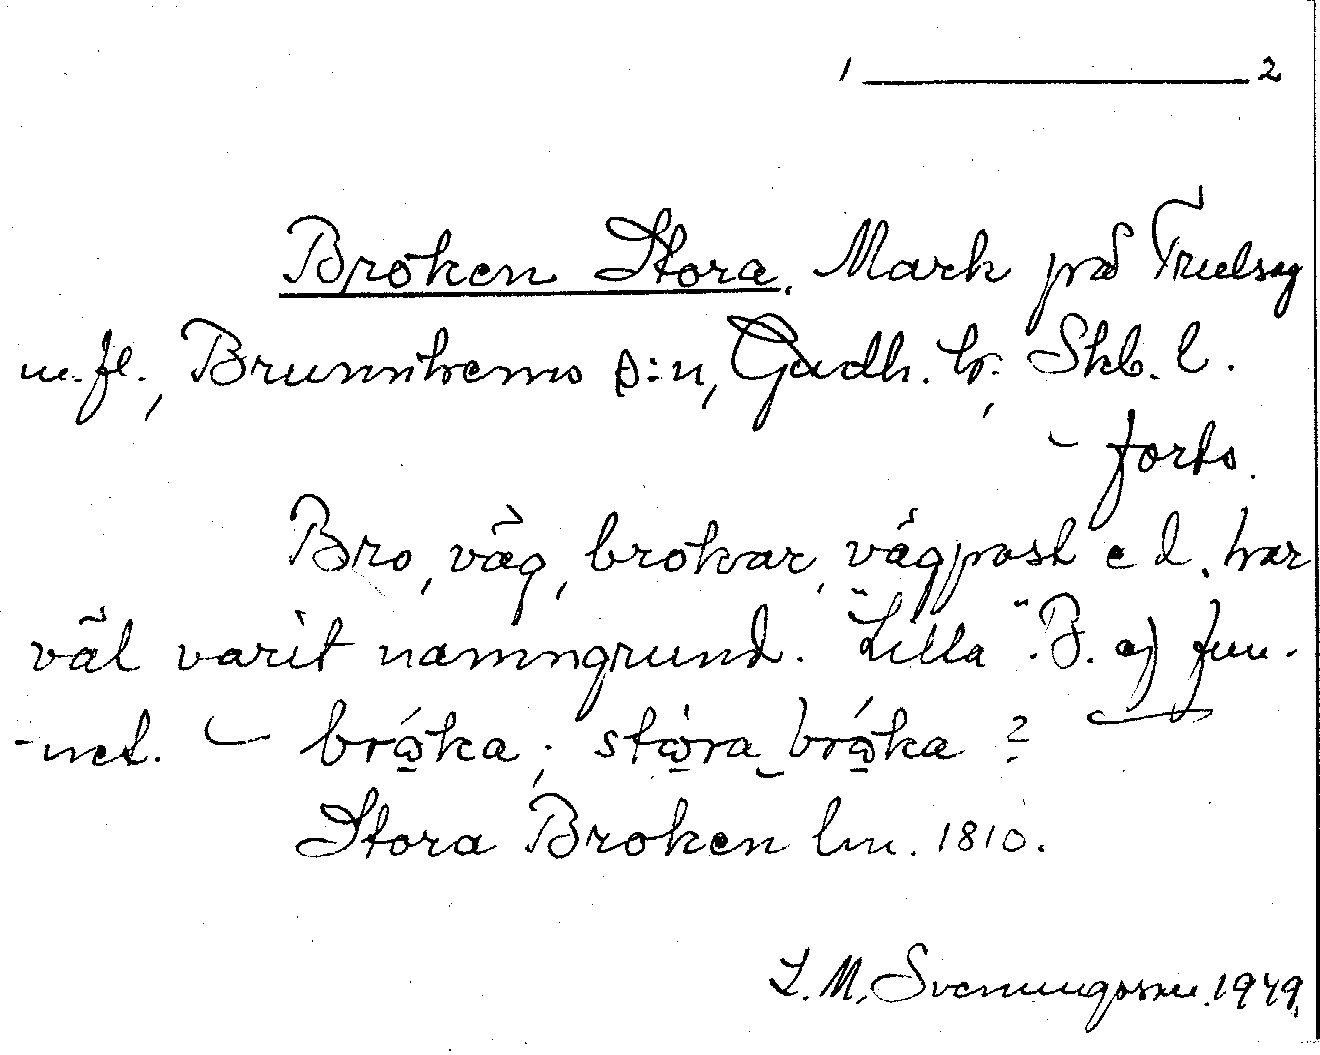 1 ———— 2
Broken Stora. Mark på Truelseg
m. fl., Brunnhems s:n, Gudh. hr., Skb. l.
– forts.
Bro, väg, brokar, vägpost e d. har
väl varit namngrund. "Lilla" B. ej fun-
-net. – brǫ́ka; stǫ̀ra brǫ́ka ?
Stora Broken lm. 1810.
L. M. Svenungsson. 1949.